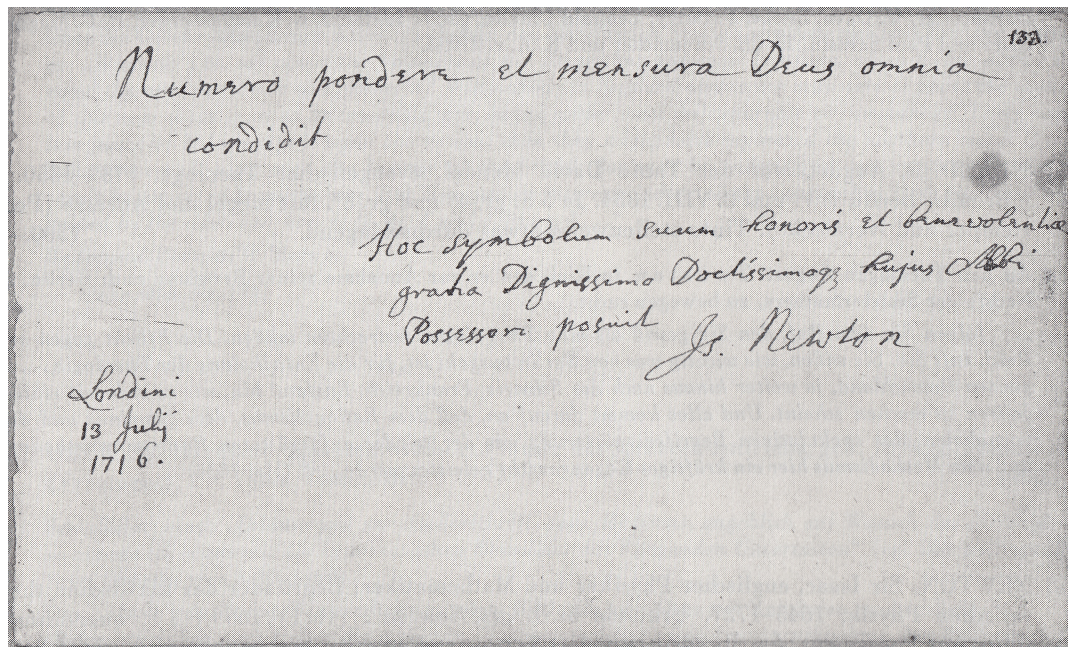 133.
Numero pondere et mensura Deus omnia
condidit
Hoc symbolum suum honoris et benevolentiæ
gratia Dignissimo Doctissimoqȝ hujus Albi
Possessori posuit
Js. Newton
Londini
13 Julij
1716.